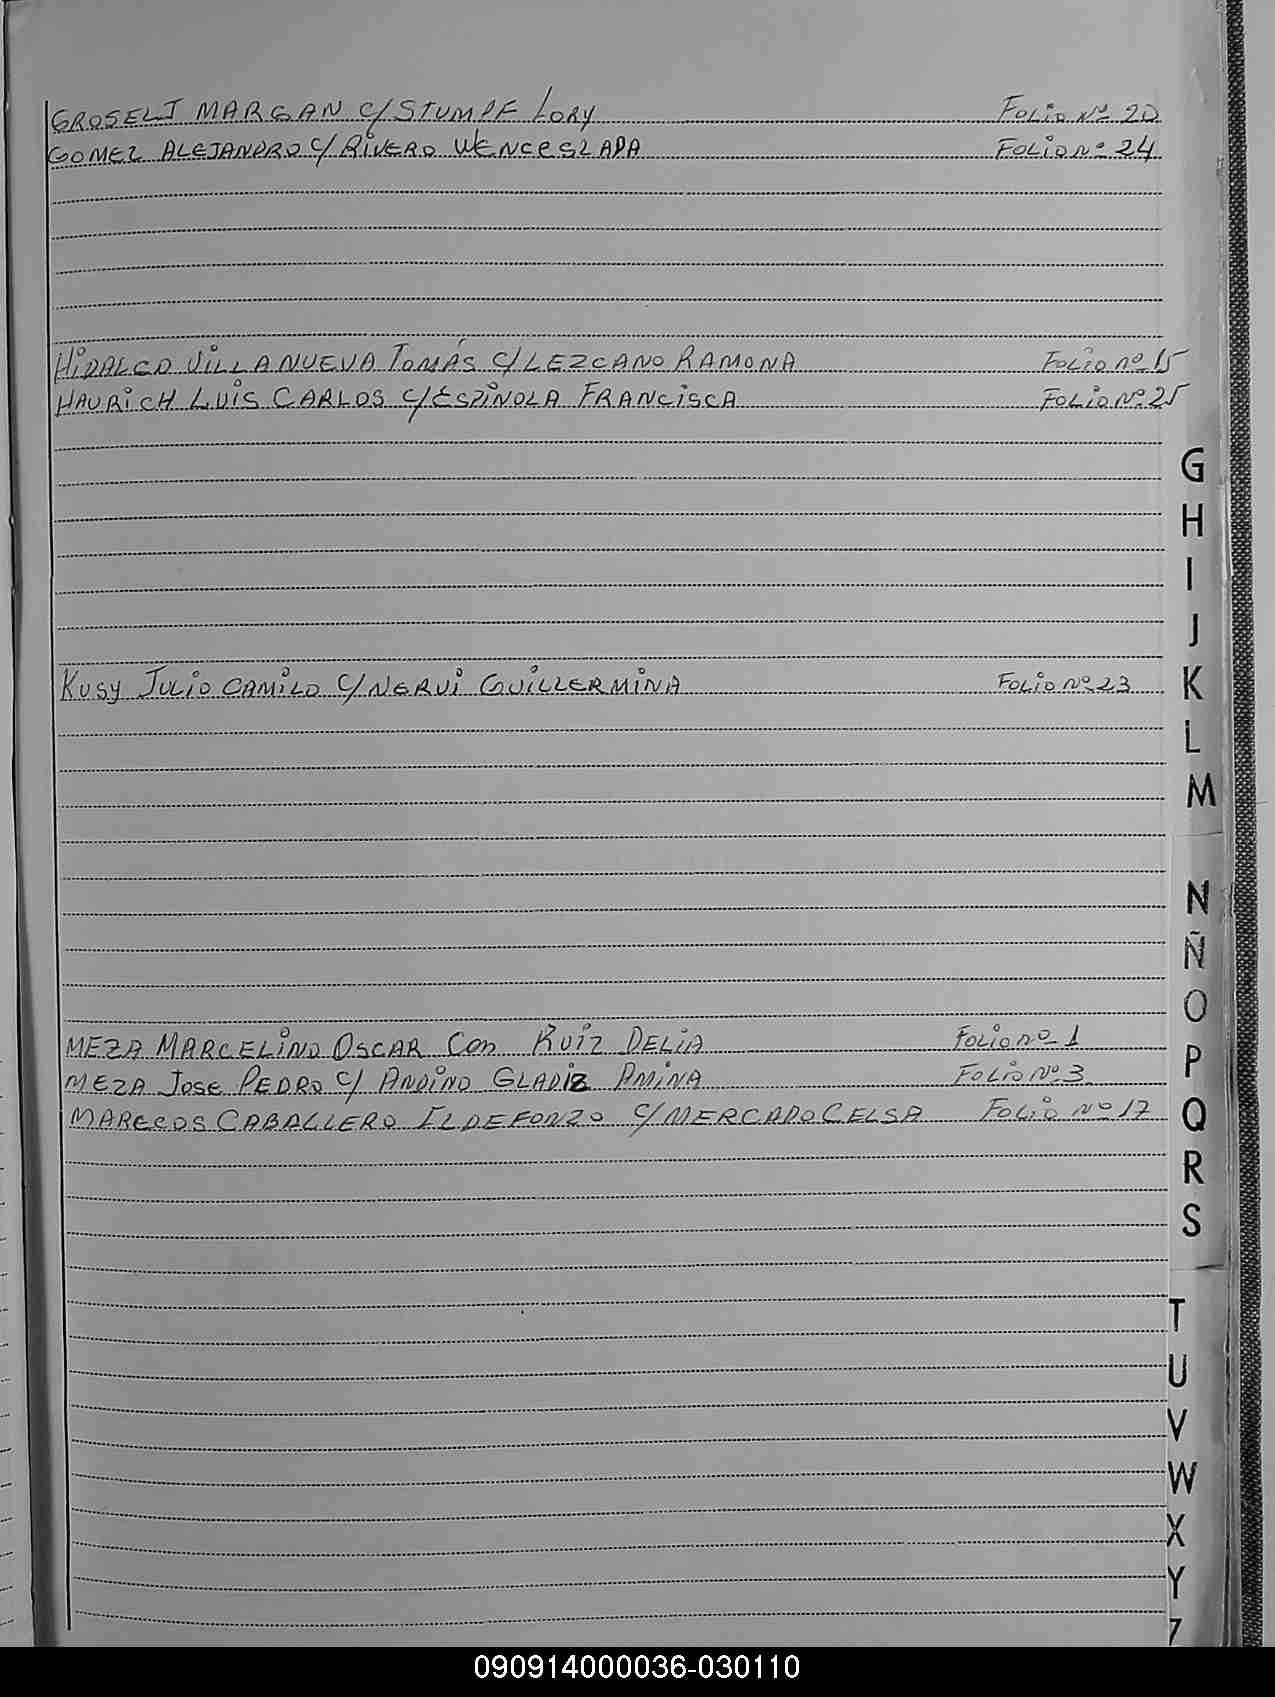 GROSELJ MARGAN C/ STUMPF LORY FOLIO Nº 20
GOMEZ ALEJANDRO C/ RIVERO WENCESLADA FOLIO Nº 24
HIDALGO VILLANUEVA TOMÁS C/ LEZCANO RAMONA FOLIO Nº 15
HAURICH LUIS CARLOS C/ ESPINOLA FRANCISCA FOLIO Nº 25
G
H
I
J
KUSY JULIO CAMILO C/ NERVI GUILLERMINA FOLIO Nº 23
K
L
M
N
Ñ
O
MEZA MARCELINO OSCAR Con RUIZ DELIA FOLIO Nº 1
P
MEZA JOSE PEDRO C/ ANDINO GLADIZ AMINA FOLIO Nº 3
MARECOS CABALLERO ILDEFONZO C/ MERCADO CELSA FOLIO Nº 17
Q
R
S
T
U
V
W
X
Y
Z
090914000036-030110